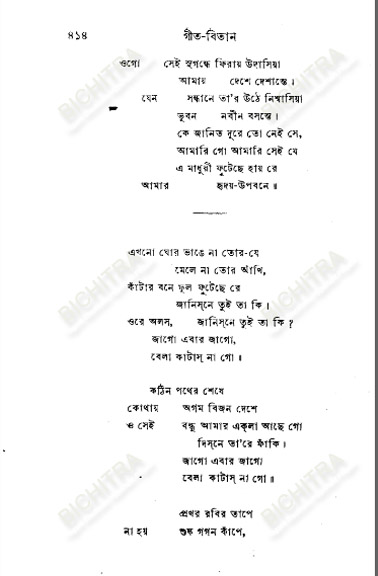 ৪১৪ গীত-বিতান
ওগো সেই সুগন্ধে ফিরায় উদাসিয়া
আমায় দেশে দেশান্তে।
যেন সন্ধানে তা'র উঠে নিশ্বাসিয়া
ভুবন নবীন বসন্তে।
কে জানিত দূরে তো নেই সে,
আমারি গো আমারি সেই যে
এ মাধুরী ফুটেছে হায় রে
আমার হৃদয়-উপবনে॥
এখনো ঘোর ভাঙে না তোর-যে
মেলে না তোর আঁখি,
কাঁটার বনে ফুল ফুটেছে রে
জানিস্‌নে তুই তা কি।
ওরে অলস, জানিস্‌নে তুই তা কি?
জাগো এবার জাগো,
বেলা কাটাস্‌ না গো।
কঠিন পথের শেষে
কোথায় অগম বিজন দেশে
ও সেই বন্ধু আমার একলা আছে গো
দিস্‌নে তা'রে ফাঁকি।
জাগো এবার জাগো
বেলা কাটাস্‌ না গো॥
প্রখর রবির তাপে
না হয় শুষ্ক গগন কাঁপে,
BICHITRA
BICHITRA
BICHITRA
BICHITRA
BICHITRA
BICHITRA